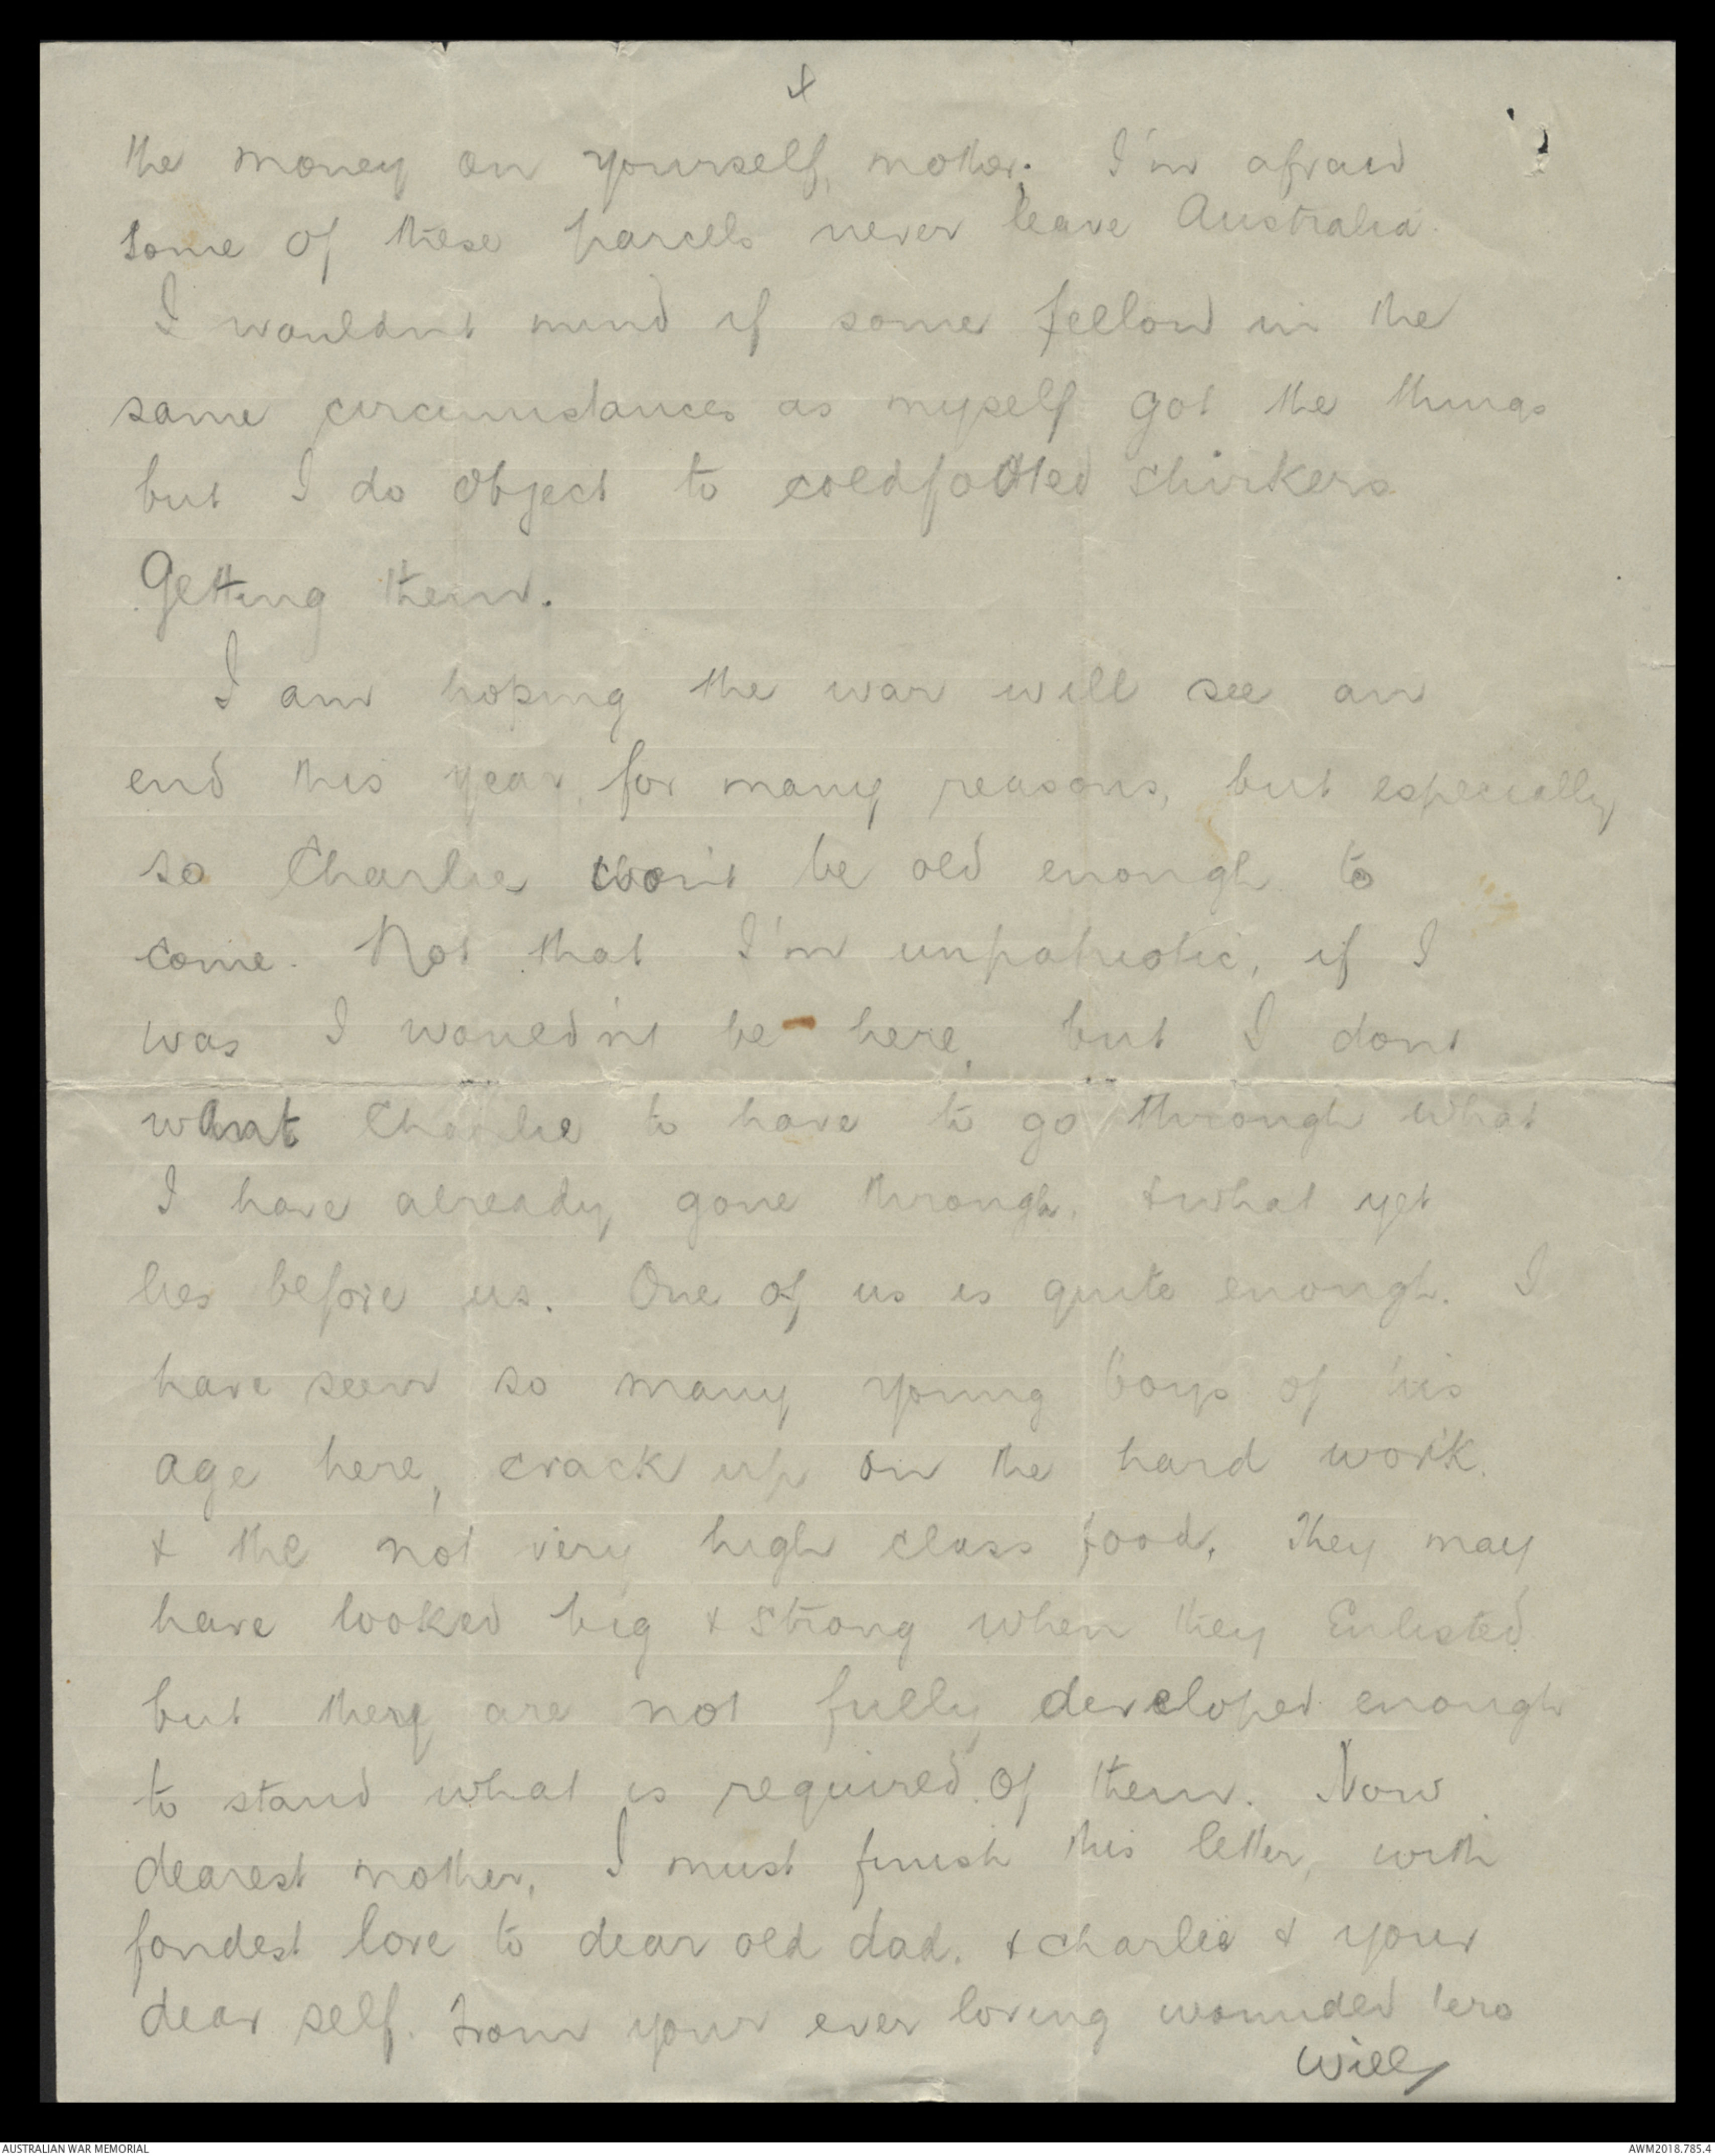 the money on yourself, mother. I'm afraid
some of these parcels never leave Australia.
I wouldnt mind if some fellow in the
same circumstances as myself got the things
but I do object to coldfooted shirkers
Getting them.
I am hoping the war will see an
end this year, for many reasons, but especially
so Charlie won't be old enough to
come. Not that I'm unpatriotic, if I
was I wouldn't be here, but I dont
want Charlie to have to go through what
I have already gone through, & what yet
lies before us. One of us is quite enough. I
have seen so many young boys of his
age here, crack up on the hard work.
& the not very high class food. They may
have looked big & strong when they Enlisted
but they are not fully developed enough
to stand what is required of them. Now
dearest mother, I must finish this letter, with
fondest love to dear old dad. & Charlie & your
dear self. From your ever loving wounded hero
Will
AUSTRALIAN WAR MEMORIAL
AWM2018.785.4